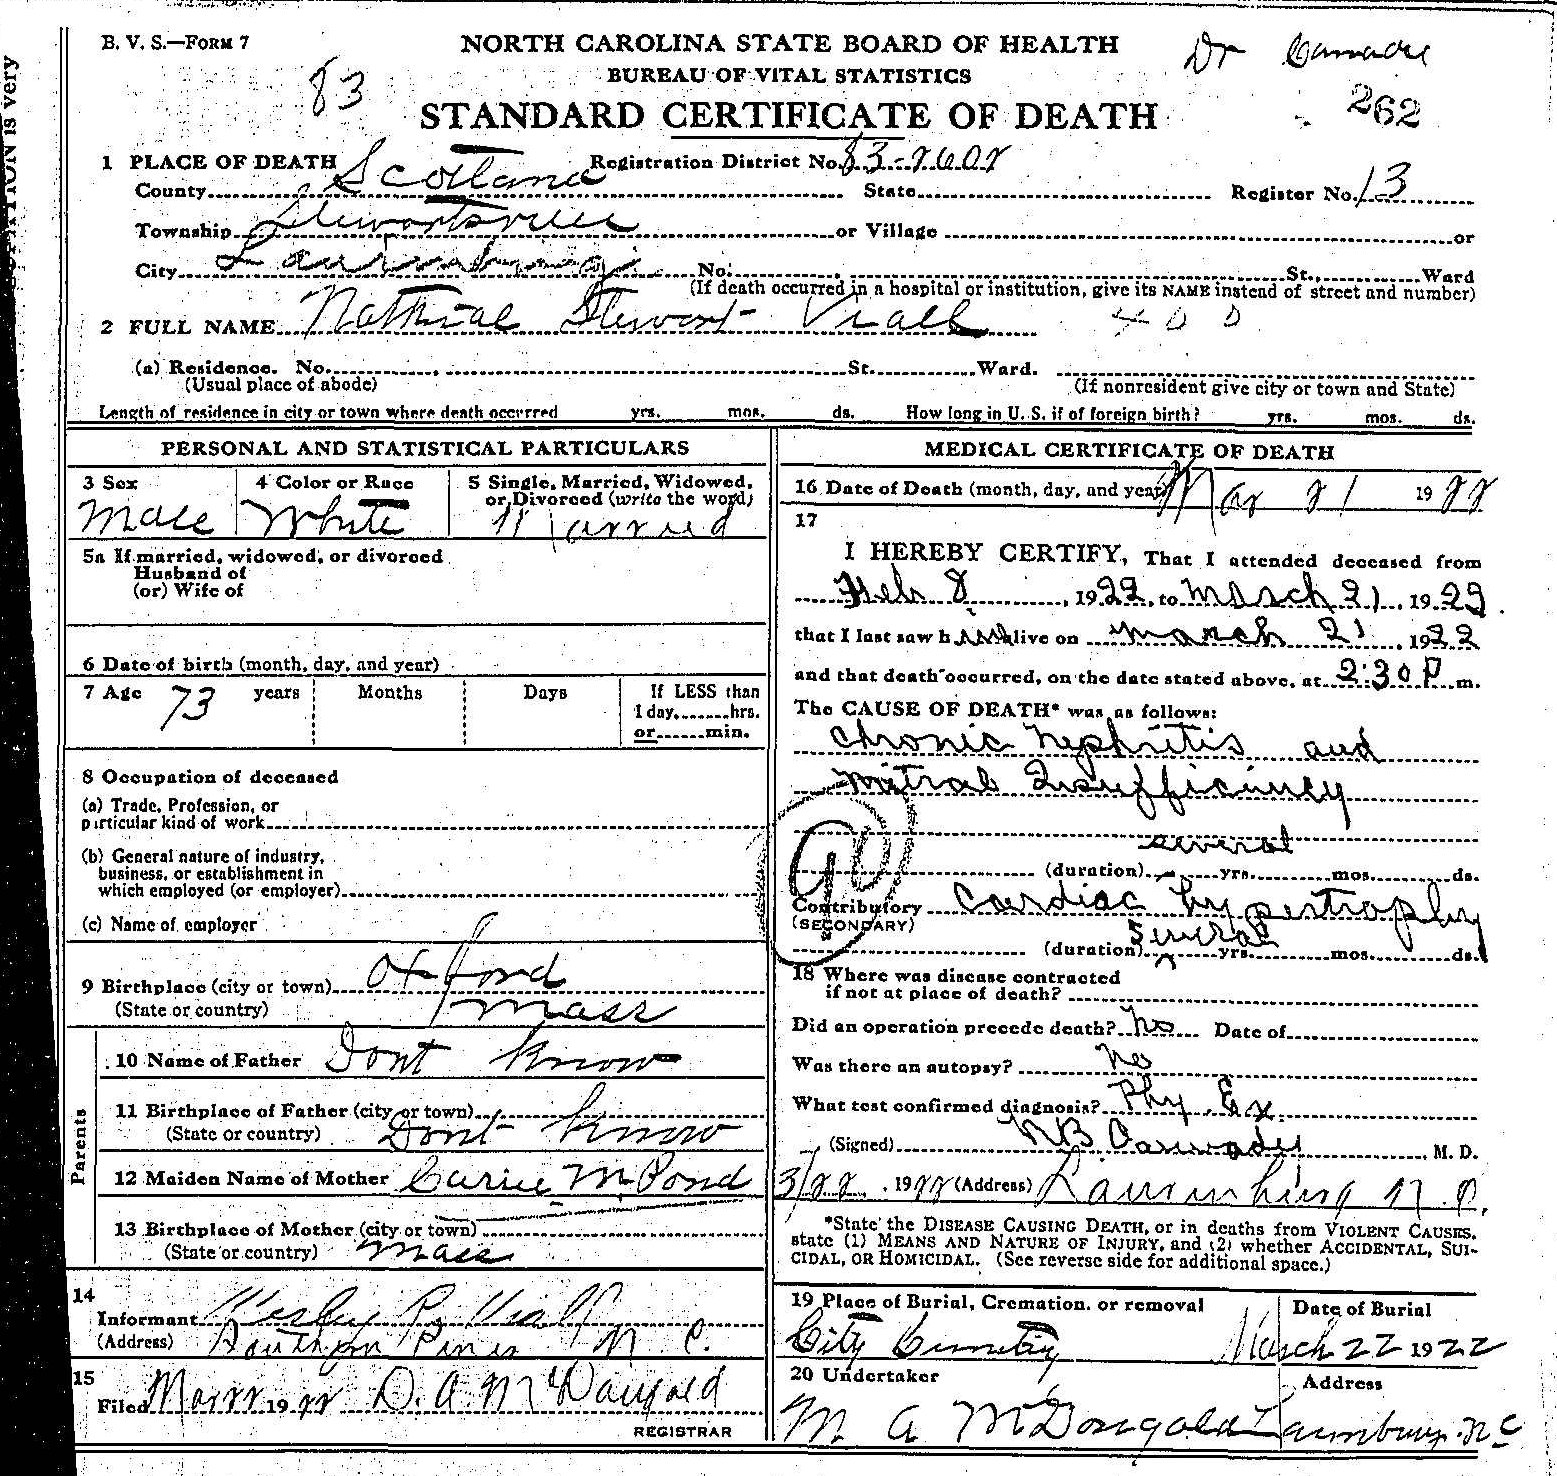 B. V. S.—FORM 7
NORTH CAROLINA STATE BOARD OF HEALTH
Dr
BUREAU OF VITAL STATISTICS
83
262
STANDARD CERTIFICATE OF DEATH
1 PLACE OF DEATH Registration District No. 83-2602
County Scotland State Register No. 13
Township Stewartsville or Village or
City Laurinburg No. St., Ward
(If death occurred in a hospital or institution, give its NAME instead of street and number)
2 FULL NAME Nathial Stewart Viall
(a) Residence. No. St. Ward.
(Usual place of abode) (If nonresident give city or town and State)
Length of residence in city or town where death occurred yrs. mos. ds. How long in U. S. if of foreign birth? yrs. mos. ds.
PERSONAL AND STATISTICAL PARTICULARS
3 Sex 4 Color or Race 5 Single, Married, Widowed, or Divorced (write the word)
Male White Married
5a If married, widowed, or divorced
Husband of
(or) Wife of
6 Date of birth (month, day, and year)
7 Age 73 years Months Days If LESS than
1 day, hrs.
or min.
8 Occupation of deceased
(a) Trade, Profession, or
particular kind of work
(b) General nature of industry,
business, or establishment in
which employed (or employer)
(c) Name of employer
9 Birthplace (city or town) Oxford
(State or country) Mass
Parents
10 Name of Father Dont know
11 Birthplace of Father (city or town)
(State or country) Dont know
12 Maiden Name of Mother Carrie M Pond
13 Birthplace of Mother (city or town)
(State or country) Mass
14
Informant Wesley P. Viall
(Address) Southern Pines N C.
15
Filed Mar 22 1922 D. A. McDougald
REGISTRAR
MEDICAL CERTIFICATE OF DEATH
16 Date of Death (month, day, and year) Mar 21 1922
17
I HEREBY CERTIFY, That I attended deceased from
Feb 8, 1922, to March 21, 1922.
that I last saw him alive on March 21, 1922
and that death occurred, on the date stated above, at 2:30 P m.
The CAUSE OF DEATH* was as follows:
Chronic Nephritis and
Mitral Insufficiency
several
(duration) yrs. mos. ds.
Contributory Cardiac hypertrophy
(SECONDARY)
Several
(duration) yrs. mos. ds.
90
18 Where was disease contracted
if not at place of death?
Did an operation precede death? No Date of
Was there an autopsy? No
What test confirmed diagnosis? Phy. Ex.
(Signed) M. D.
3/22, 1922 (Address) Laurinburg N. C.
*State the DISEASE CAUSING DEATH, or in deaths from VIOLENT CAUSES,
state (1) MEANS AND NATURE OF INJURY, and (2) whether ACCIDENTAL, SUI-
CIDAL, OR HOMICIDAL. (See reverse side for additional space.)
19 Place of Burial, Cremation, or removal Date of Burial
City Cemetery March 22 1922
20 Undertaker Address
M A McDougald Laurinburg. N C